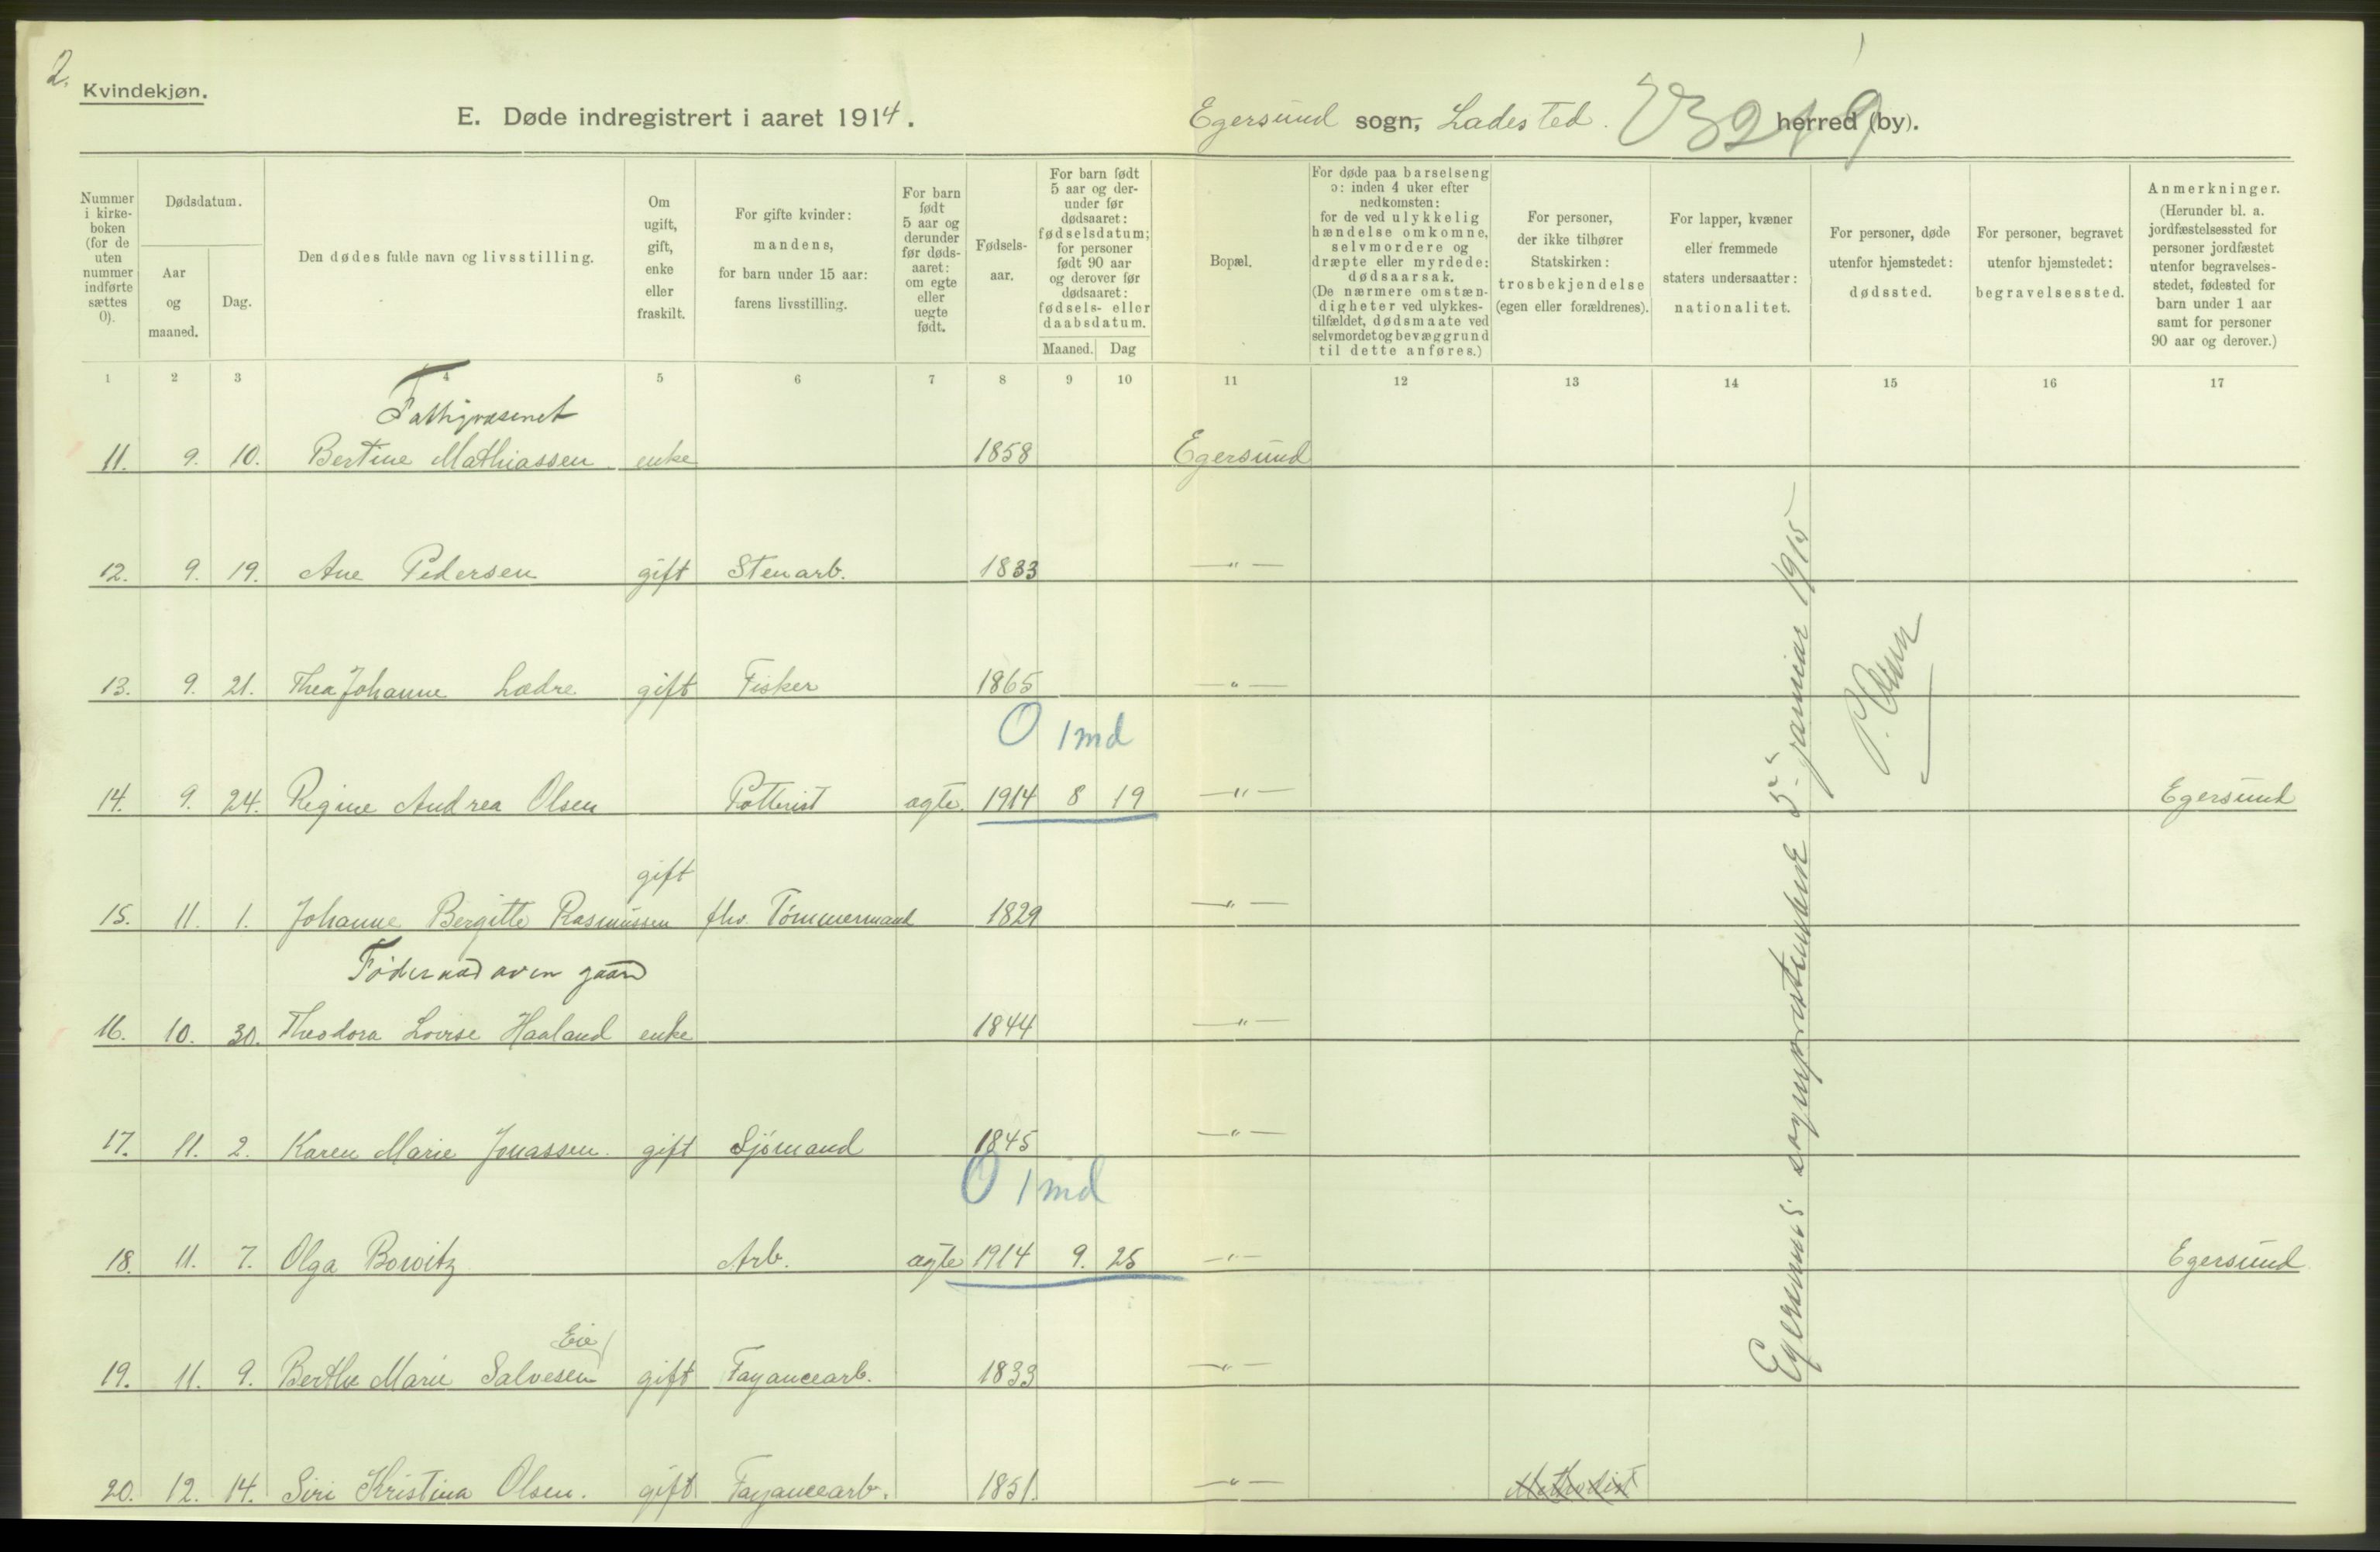 2.
Kvindekjøn.
E. Døde indregistrert i aaret 1914.
Egersund sogn, Ladested. herred (by).
Nummer i kirkeboken (for de uten nummer indførte sættes 0).
Dødsdatum.
Aar og maaned.
Dag.
Den dødes fulde navn og livsstilling.
Om ugift, gift, enke eller fraskilt.
For gifte kvinder: mandens, for barn under 15 aar: farens livsstilling.
For barn født 5 aar og derunder før dødsaaret: om egte eller uegte født.
Fødselsaar.
For barn født 5 aar og derunder før dødsaaret: fødselsdatum; for personer født 90 aar og derover før dødsaaret: fødsels- eller daabsdatum.
Maaned. Dag
Bopæl.
For døde paa barselseng ɔ: inden 4 uker efter nedkomsten: for de ved ulykkelig hændelse omkomne, selvmordere og dræpte eller myrdede: dødsaarsak. (De nærmere omstændigheter ved ulykkestilfældet, dødsmaate ved selvmordet og bevæggrund til dette anføres.)
For personer, der ikke tilhører Statskirken: trosbekjendelse (egen eller forældrenes).
For lapper, kvæner eller fremmede staters undersaatter: nationalitet.
For personer, døde utenfor hjemstedet: dødssted.
For personer, begravet utenfor hjemstedet: begravelsessted.
Anmerkninger. (Herunder bl. a. jordfæstelsessted for personer jordfæstet utenfor begravelsesstedet, fødested for barn under 1 aar samt for personer 90 aar og derover.)
1 2 3 4 5 6 7 8 9 10 11 12 13 14 15 16 17
Fattigvæsenet
11. 9. 10. Bertine Mathiassen enke 1858 Egersund
12. 9. 19. Ane Pedersen gift Stenarb. 1833 —"—
13. 9. 21. Thea Johanne Lædre gift Fisker 1865 —"—
0 1 md
14. 9. 24. Regine Andrea Olsen Potterist ægte. 1914 8 19 —"— Egersund
gift
15. 11. 1. Johanne Bergitte Rasmussen fhv. Tömmermand 1829 —"—
Föderaad av en gaard
16. 10. 30. Theodora Lovise Haaland enke 1844 —"—
17. 11. 2. Karen Marie Jonassen. gift Sjömand 1845 —"—
0 1 md
18. 11. 7. Olga Bowitz Arb. ægte 1914 9. 25 —"— Egersund
Eie
19. 11. 9. Berthe Marie Salvesen gift Fayancearb. 1833 —"—
20. 12. 14. Siri Kristina Olsen. gift Fayancearb. 1851. —"— Methodist
Egersunds sogneprestembede 5. januar 1915